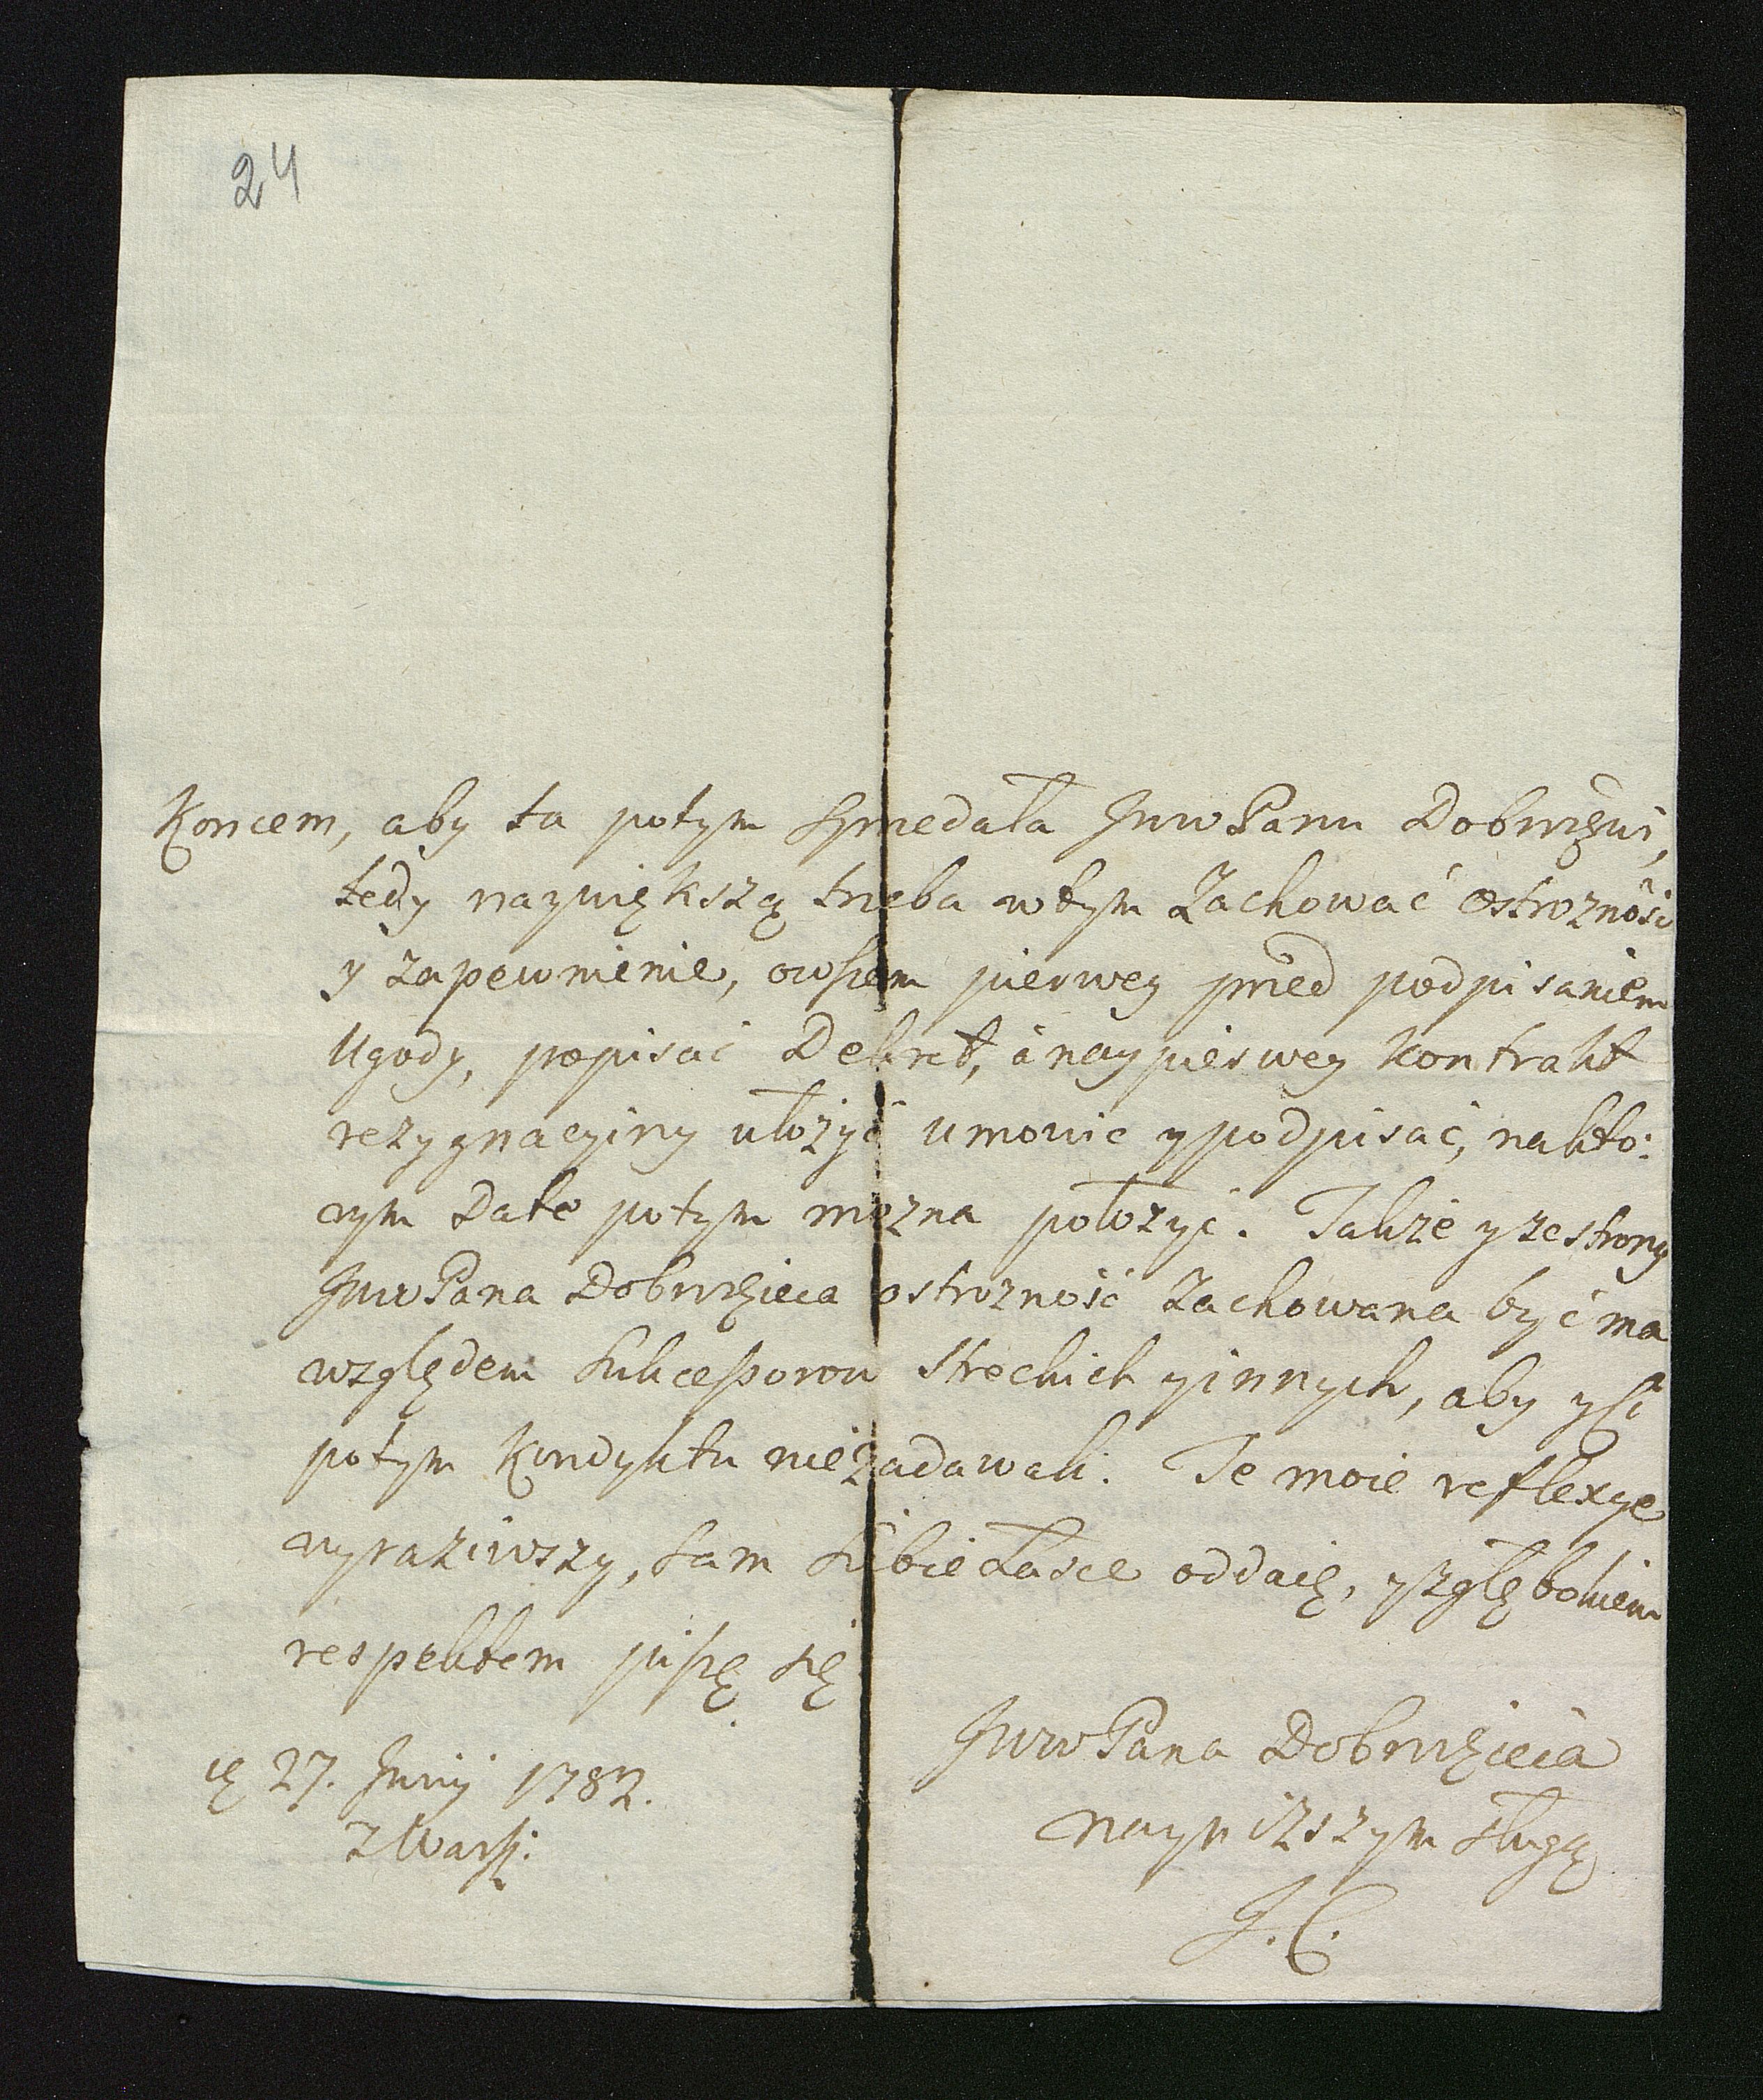 24
Koncem, aby ta potym sprzedała JwwPanu Dobrodzieiowi,
tedy naywiększą trzeba wtym zachować ostrozność
y zapewnienie, owszem pierwey przed podpisaniem
Ugody, popisać Dekret, á naypierwey Kontrakt
rezygnacyiny ułożyć umowic ypodpisać, nakto:
rym Date potym mozna położyć. Takze yzestrony
JwwPana Dobrodzieia ostrozność zachowana być ma
względem Sukcessorow Streckich yinnych, aby yci
potym Kondyktu niezadawali. Te moie reflexye
wyraziwszy, sam siebie Łasce oddaię, yzgłębokiem
respektem piszę się
JwwPana Dobrodzieia
naynizszym sługą
J. C.
27. Junij 1782.
z Warsz: